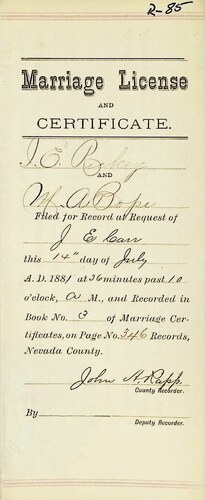 R-85
Marriage License
AND
CERTIFICATE.
J. E. Rickey
AND
M. A. Pope
Filed for Record at Request of
J E Carr
this 14" day of July
A. D. 1881 at 36 minutes past 10
o'clock, A M., and Recorded in
Book No. 3 of Marriage Cer-
tificates, on Page No. 346 Records,
Nevada County.
John A. Rapp
County Recorder.
By
Deputy Recorder.